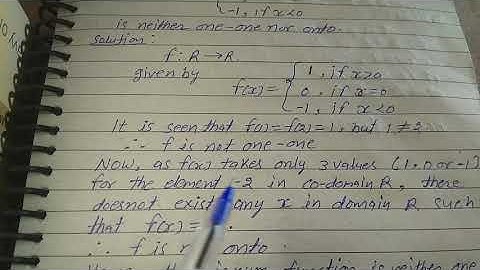 -1, if x<0
is neither one-one nor onto.
Solution:
f: R → R
given by
f(x) = { 1, if x>0
0, if x=0
-1, if x<0
It is seen that f(1)=f(2)=1, but 1≠2
∴ f is not one-one
Now, as f(x) takes only 3 values (1,0 or -1)
for the element -2 in co-domain R, there
doesnot exist any x in domain R such
that f(x) =
∴ f is onto.
function is neither one